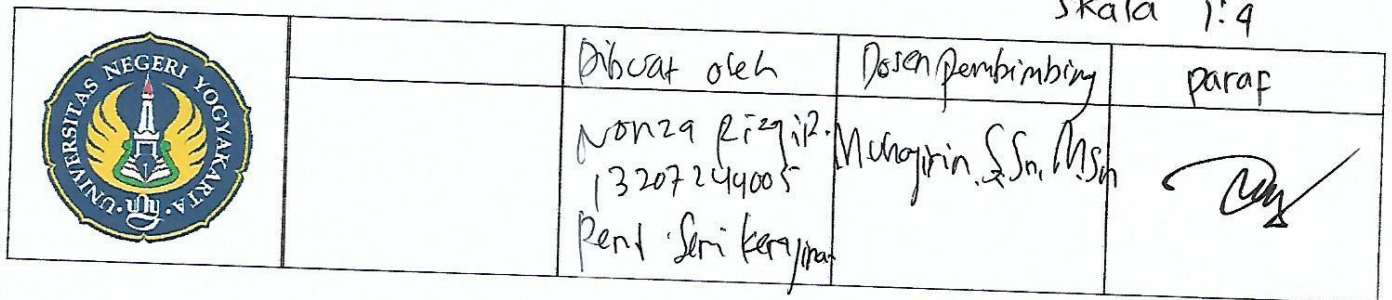 Skala 1:4
UNIVERSITAS NEGERI YOGYAKARTA
UNY
Dibuat oleh
Dosen pembimbing
paraf
Nonza Rizqi P.
13207244005
Pend Seni kerajinan
Muhajirin, S.Sn, M.Sn